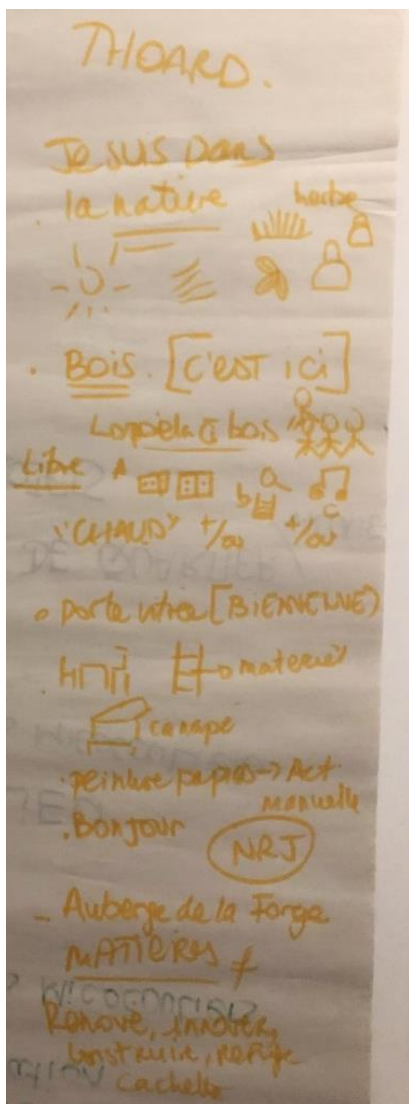 THOARD.
Je suis dans
la nature herbe
. BOIS. [C'EST ici]
bois
Libre A
b a c
"CHAUD" +/ou +/ou
DE QUARTIER
. porte vitrée [BIENVENUE]
materiel
canape
. peinture papies -> Act
manuelle
. Bonjour
NRJ
- Auberge de la Forge
MATIÈRES
Renove, innover,
construire, refuge
cachette